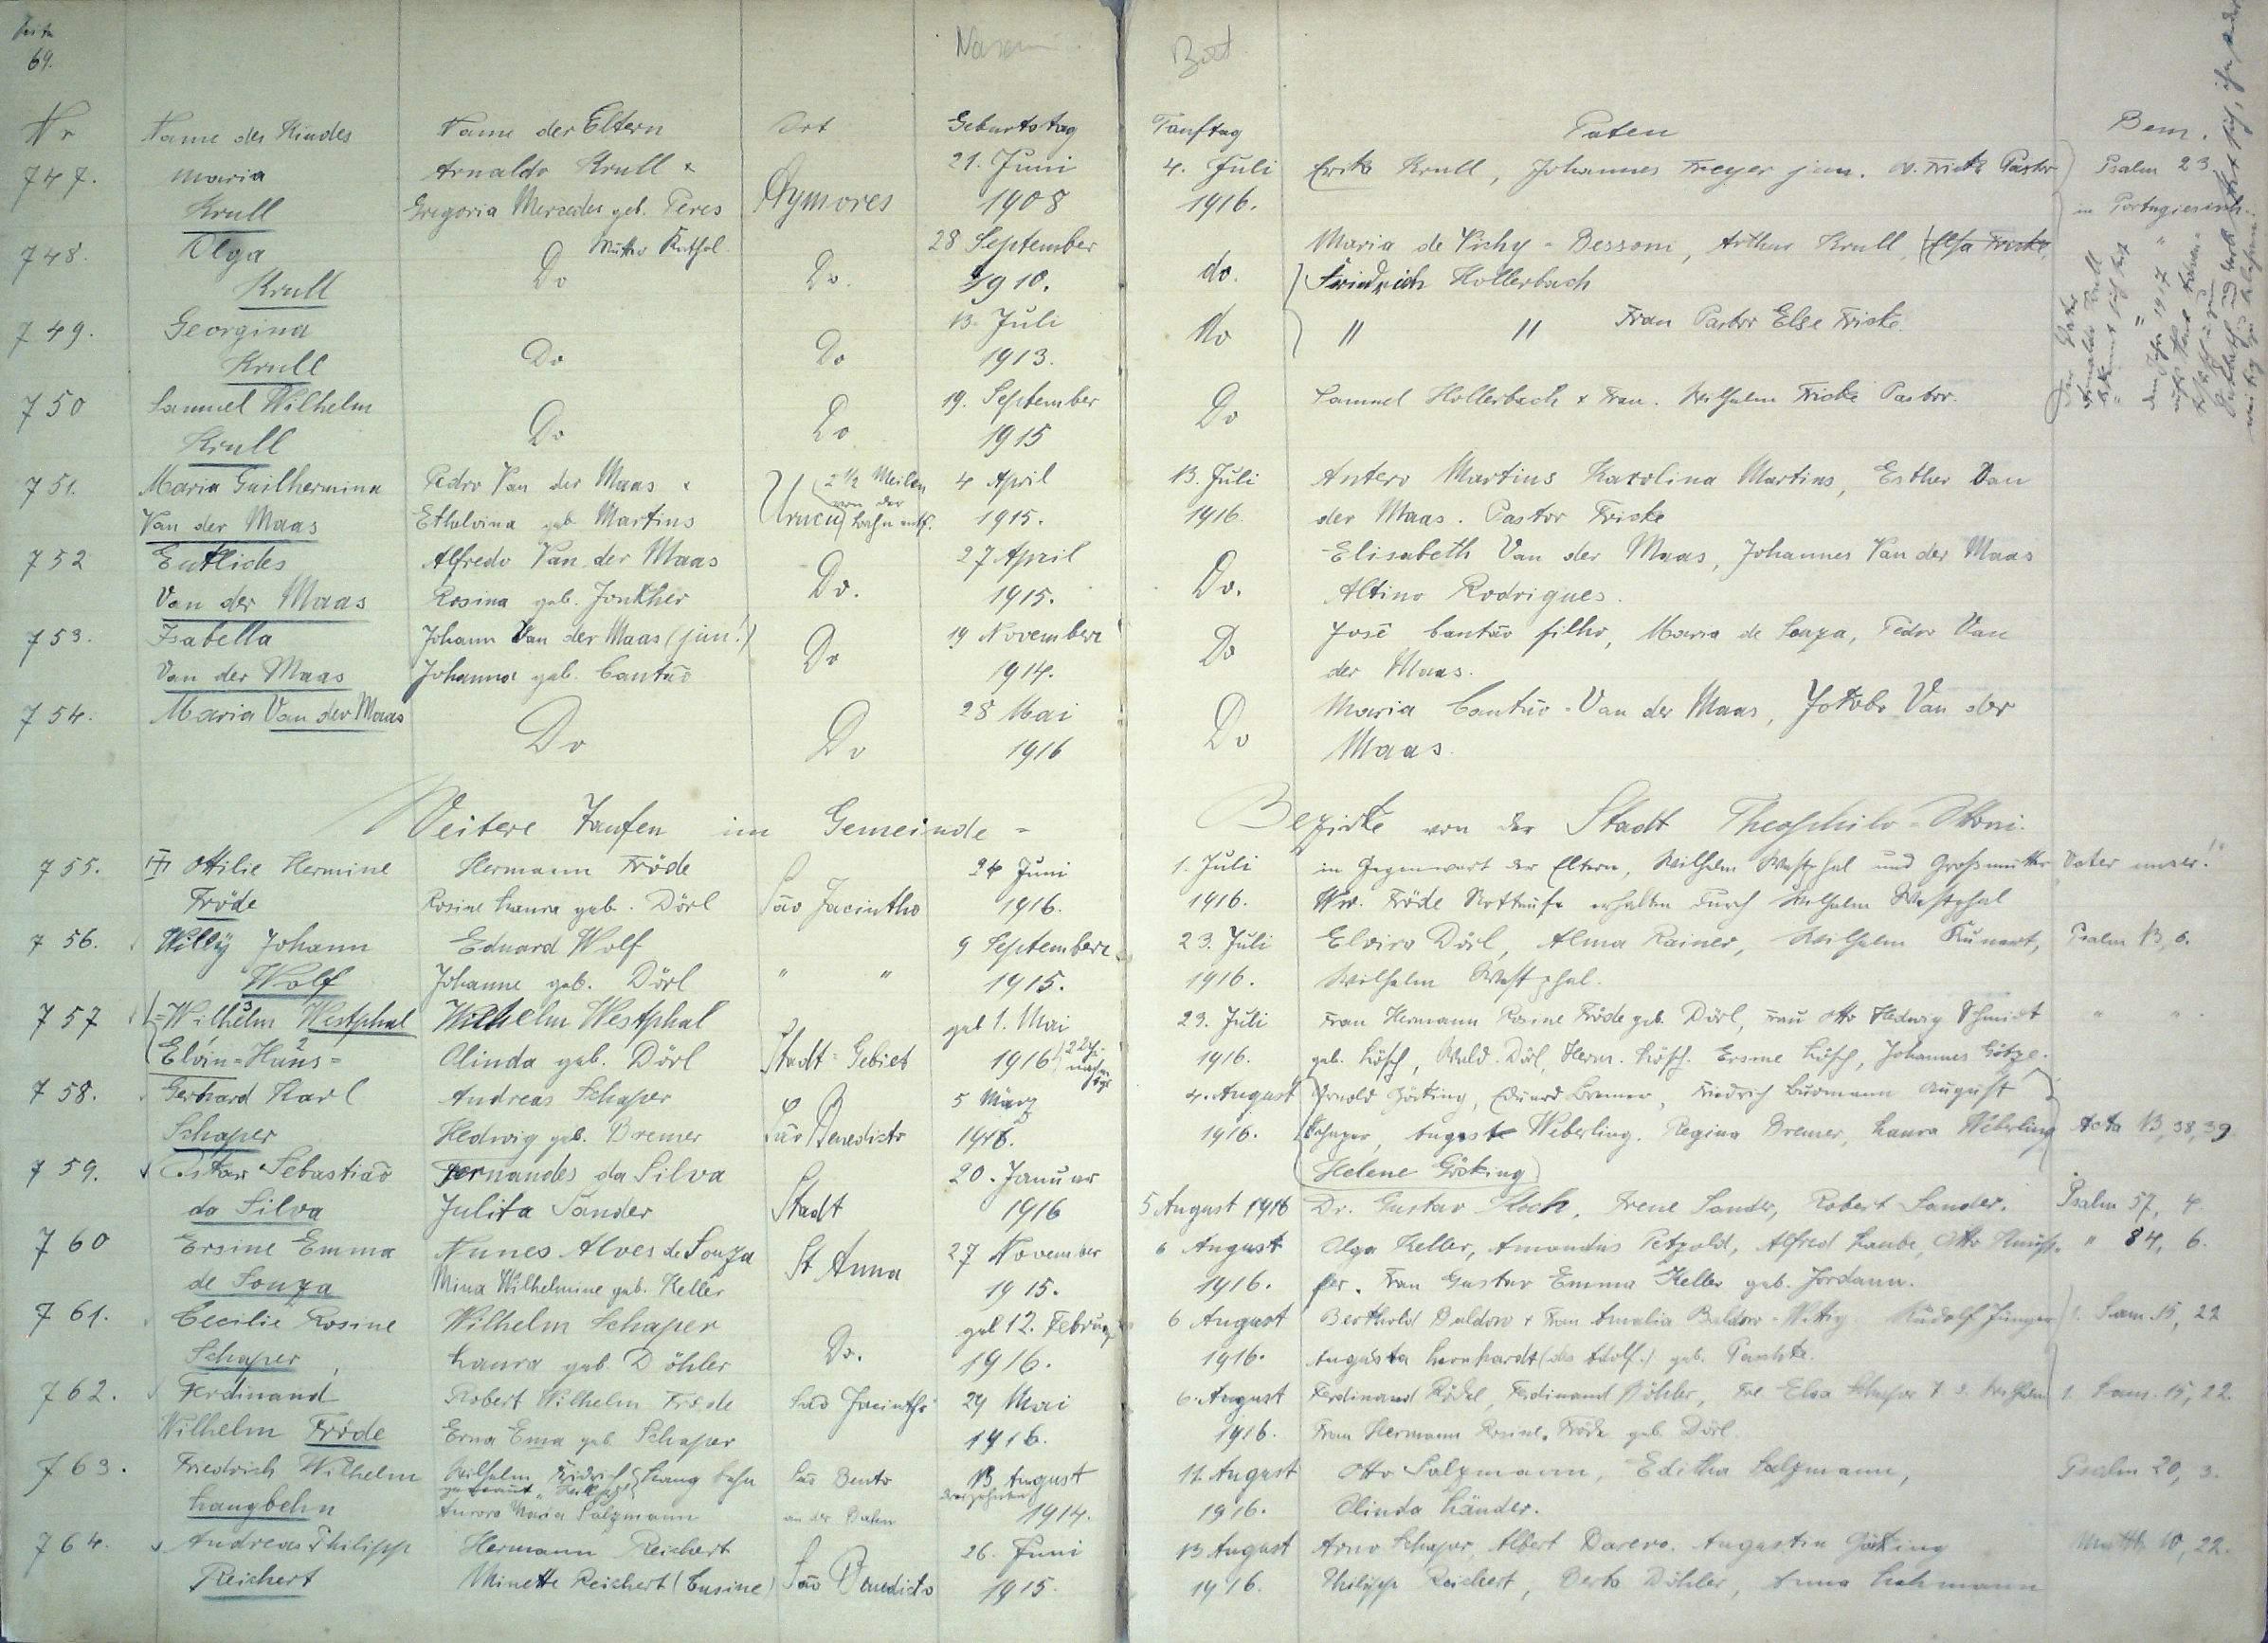 Seite
69.
Nr Name des Kindes Name der Eltern Ort Geburtstag Tauftag Paten Bem.
747. Maria Arnaldo Krull & 21. Juni 4. Juli Erich Krull, Johannes Freyer jun. Fricke Pastor Psalm 23
Krull Gregoria Mercedes geb. Peres Aymores 1908 1916. in Portugiesisch
748. Olga Do Mutter Kathol. Do. 28 September do. Maria de Vichy-Bessoni, Arthur Krull, Elsa Fricke,
Krull 1910. Friedrich Hollerbach
749. Georgina Do Do 13. Juli Do " " Frau Pastor Else Fricke
Krull 1913.
750 Samuel Wilhelm Do Do 19. September Do Samuel Hollerbach & Frau. Wilhelm Fricke Pastor.
Krull 1915
751. Maria Guilhermina Pedro Van der Maas & Urucu 2 1/2 Meilen 4 April 13. Juli Antero Martins Karolina Martins, Esther Van
Van der Maas Ethelvina geb. Martins von der Bahn entf. 1915. 1916. der Maas. Pastor Fricke
752 Eutlides Alfredo Van der Maas Do. 27 April Do. Elisabeth Van der Maas, Johannes Van der Maas
Van der Maas Rosina geb. Jonkher 1915. Altino Rodrigues.
753. Isabella Johann Van der Maas (jun!) Do 19 November Do José Cantão filho, Maria de Souza, Pedro Van
Van der Maas Johanna geb. Cantão 1914. der Maas.
754. Maria Van der Maas Do Do 28 Mai Do Maria Cantão-Van der Maas, Jakobo Van der
1916 Maas.
Weitere Taufen im Gemeinde = Bezirke von der Stadt Theophilo-Ottoni.
755. Ottilie Hermine Hermann Fröde São Jacintho 24 Juni 1. Juli in Gegenwart der Eltern, Wilhelm Westphal und Großmutter Vater unser!
Fröde Rosine Laura geb. Dörl 1916. 1916. Ww. Fröde Nottaufe erhalten durch Wilhelm Westphal
756. Willy Johann Eduard Wolf " " 9 September 23. Juli Elvira Dörl, Alma Rainer, Wilhelm Kunert, Psalm 13, 6.
Wolf Johanne geb. Dörl 1915. 1916. Wilhelm Westphal.
757 =Wilhelm 3 Westphal Wilhelm Westphal Stadt-Gebiet geb 1. Mai 23. Juli Frau Hermann Rosine Fröde geb. Dörl, Frau Otto Hedwig Schmidt " "
Elvin=Hans 2= Olinda geb. Dörl 1916 1916. geb. Lösch, Wald. Dörl, Herm. Lösch. Ersine Lösch, Johannes Götze.
758. Gerhard Karl Andreas Schaper São Benedicto 5 März 4. August Arnold Göcking, Eduard Bremer, Friedrich Burmann August
Schaper Hedwig geb. Bremer 1916. 1916. Schaper, August Weberling. Regina Bremer, Laura Weberling Acta 13, 38, 39
Helene Göcking
759. Oskar Sebastiaõ Fernandes da Silva Stadt 20. Januar 5 August 1916 Dr. Gustav Koch, Irene Sander, Robert Sander. Psalm 57, 4
da Silva Julita Sander 1916
760 Ersine Emma Nunes Alves de Souza St Anna 27 November 6 August Olga Keller, Amandus Petzold, Alfred Laube, Otto " 84, 6.
de Souza Mina Wilhelmine geb. Keller 1915. 1916. Frau Gustav Emma Keller geb. Jordann.
761. Cecilie Rosine Wilhelm Schaper Do. geb 12. Februar 6 August Berthold Buldow & Frau Amalia Buldow-Wittig Rudolf Jünger 1. Sam. 15, 22
Schaper Laura geb. Döhler 1916. 1916. Augusta Leonhardt (des Adolf.)
762. Ferdinand Robert Wilhelm Fröde Saõ Jacintho 24 Mai 6. August Ferdinand Rödel, Ferdinand Döhler, 1. Sam. 15, 22.
Wilhelm Fröde Erna Ema geb. Schaper 1916. 1916. Frau Hermann Rosine Fröde geb. Dörl.
763. Friedrich Wilhelm Wilhelm Fridrich Langbehn São Bento 13 August 11. August Otto Salzmann, Editha Salzmann, Psalm 20, 3.
Langbehn genannt Aurora Maria Salzmann an der Bahn dreizehnten 1914. 1916. Olinda Länder.
764. Andreas Philipp Hermann Reichert São Benedicto 26. Juni 13 August Arno Schaper, Albert Barero. Augustin Göcking Matth. 10, 22.
Reichert Minette Reichert (Cusine) 1915. 1916. Philipp Reichert, Berta Döhler, Anna Lehmann